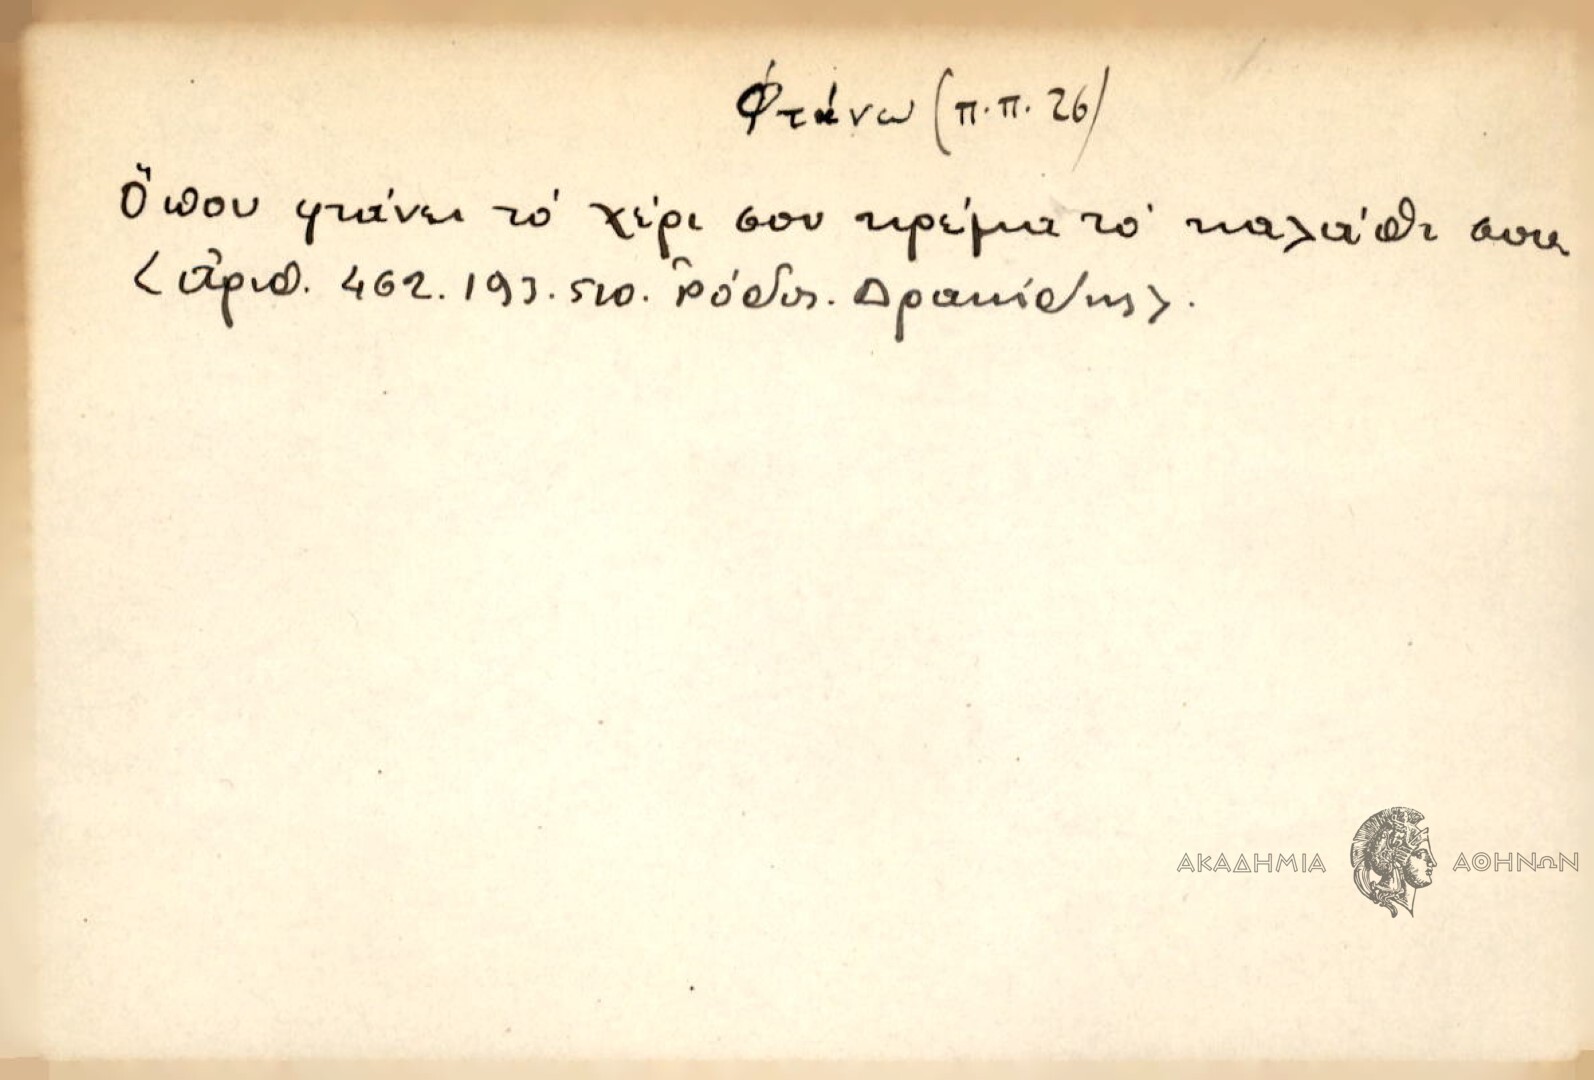 Φτάνω (π.π. 26)
Ὅπου φτάνει τό χέρι σου κρέμα τό καλάθι σου
<ἀριθ. 462. 193. 510. Ρόδος. Δρακίδης>.
ΑΚΑΔΗΜΙΑ ΑΘΗΝΩΝ